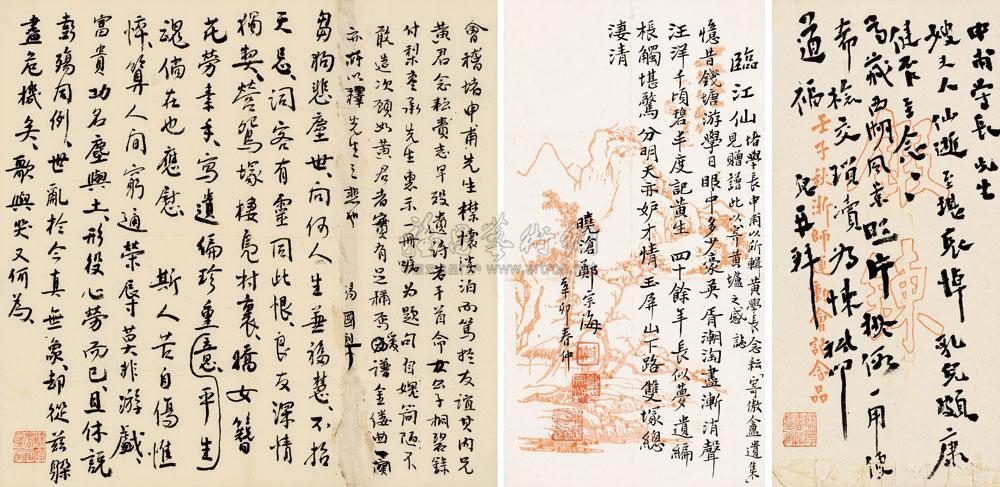 申甫学長先生
嫂夫人仙逝至堪哀悼乳兒頗康
健
希檢交瑣瀆為悚祇叩
道福 再拜
壬子秋浙師運動會記念品
臨江仙 堵學長申甫以所輯黃學長念耘寄傲盦遺集
見贈譜此以寄黃壚之感 誌
憶昔錢塘游學日眼中多少豪英胥潮淘盡漸消聲
汪洋千頃碧丰度記黃生 四十餘年長似夢遺編
棖觸堪驚分明天亦妒才情玉屏山下路雙塚總
淒清
曉滄鄭宗海
辛卯春仲
會稽堵申甫先生襟懷淡泊而篤於友誼其內兄
黃君念耘賚志早歿遺詩若干首命女公子桐碧錄
付梨棗承先生惠示一冊囑為題句自媿簡陋不
敢造次顧如黃君者實有足稱焉爰譜金縷曲一闋
亦所以釋先生之悲也
芻狗悲塵世、問何人生無福慧、不招
天忌、詞客有靈同此恨、良友深情
獨契、營鴛塚、棲鳧村裏、嬌女簪
花勞素手、寫遺編珍重意平生
魂倘在也應慰 斯人苦自傷憔
悴、算人間窮通榮辱、莫非游戲、
富貴功名塵與土、形役心勞而已、且休說
彭殤同例、世亂於今真無象、却從茲躲
盡危機矣、歌與哭又何為、